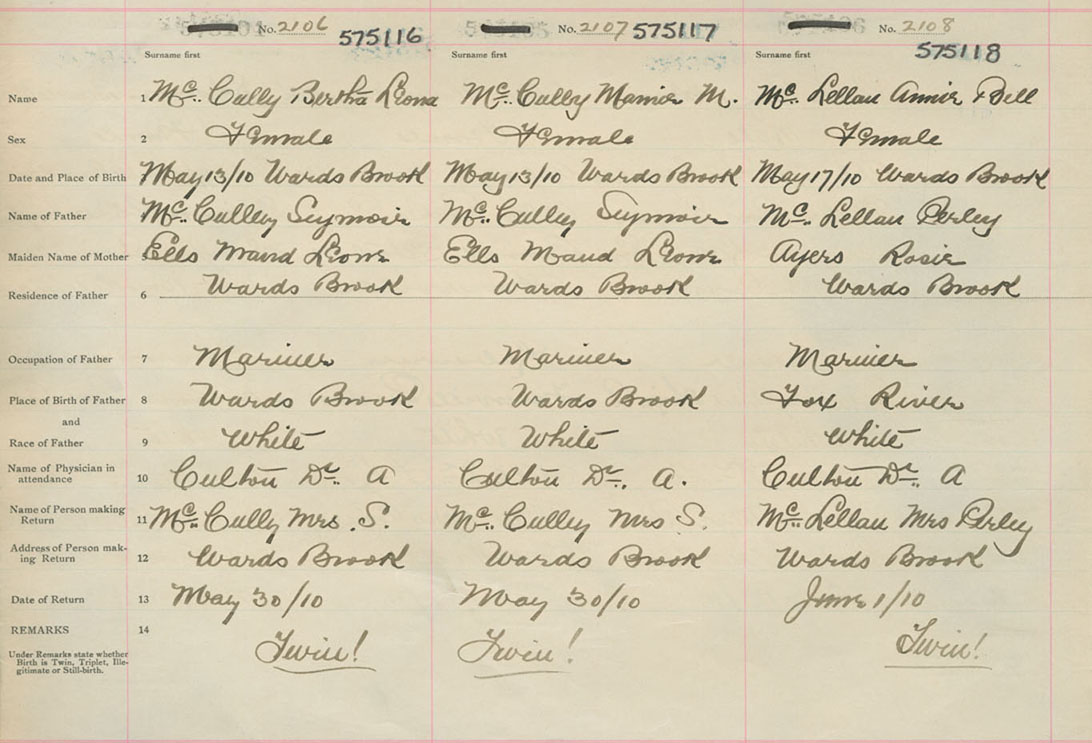 No. 2106 575116 No. 2107 575117 No. 2108 575118
Surname first Surname first Surname first
Name 1 Mc. Cully Bertha Leona Mc. Cully Mamie M. Mc. Lellan Annie Dell
Sex 2 Female Female Female
Date and Place of Birth May 13/10 Wards Brook May 13/10 Wards Brook May 17/10 Wards Brook
Name of Father Mc. Culley Seymoir Mc. Culley Seymoir Mc. Lellan Perley
Maiden Name of Mother Ells Maud Leone Ells Maud Leone Ayers Rosie
Residence of Father 6 Wards Brook Wards Brook Wards Brook
Occupation of Father 7 Mariner Mariner Mariner
Place of Birth of Father 8 Wards Brook Wards Brook Fox River
and
Race of Father 9 White White White
Name of Physician in
attendance 10 Culton Dr. A Culton Dr. A. Culton Dr. A
Name of Person making
Return 11 Mc. Cully Mrs. S. Mc. Culley Mrs S. Mc. Lellan Mrs Perley
Address of Person mak-
ing Return 12 Wards Brook Wards Brook Wards Brook
Date of Return 13 May 30/10 May 30/10 June 1/10
REMARKS 14 Twin! Twin! Twin!
Under Remarks state whether
Birth is Twin, Triplet, Ille-
gitimate or Still-birth.